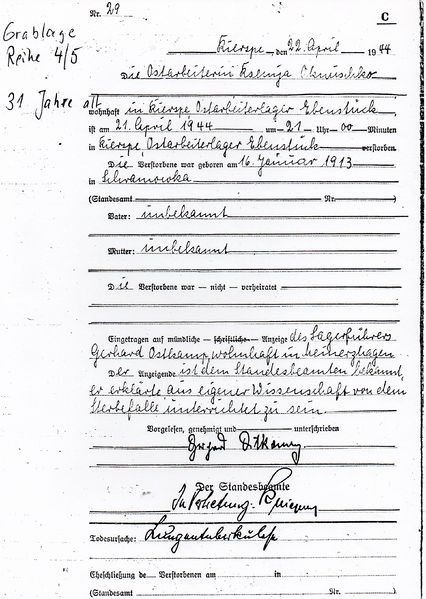 Nr. 29
C
Grablage
Reihe 4/5
31 Jahre alt
Kierspe, den 22. April 1944
Die Ostarbeiterin Ksenija
wohnhaft in Kierspe Ostarbeiterlager Ebenstück
ist am 21. April 1944 um 21 Uhr 00 Minuten
in Kierspe, Ostarbeiterlager Ebenstück verstorben.
Die Verstorbene war geboren am 16. Januar 1913
in
(Standesamt Nr. )
Vater: unbekannt
Mutter: unbekannt
Die Verstorbene war — nicht — verheiratet
Eingetragen auf mündliche — schriftliche — Anzeige des Lagerführers
Gerhard Ostkamp, wohnhaft in Meinerzhagen
Der Anzeigende ist dem Standesbeamten bekannt,
er erklärte aus eigener Wissenschaft von dem
Sterbefalle unterrichtet zu sein.
Vorgelesen, genehmigt und unterschrieben
Der Standesbeamte
In Vertretung:
Todesursache: Lungentuberkulose
Eheschließung de Verstorbenen am in
(Standesamt Nr. )